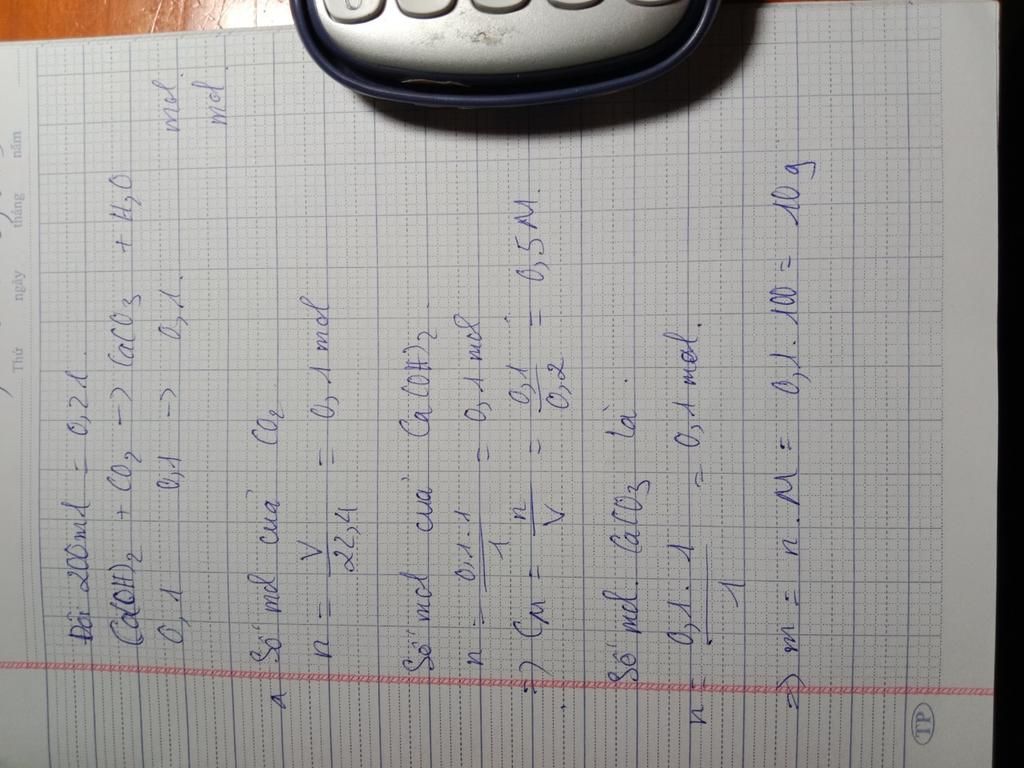 Thứ ngày tháng năm
Đổi 200ml = 0,2l.
Ca(OH)2 + CO2 -> CaCO3 + H2O
0,1 0,1 -> 0,1. mol
mol
a Số mol của CO2
n = V/22,4 = 0,1 mol
Số mol của Ca(OH)2
n = 0,1.1/1 = 0,1 mol
=> CM = n/V = 0,1/0,2 = 0,5M.
Số mol CaCO3 là.
n = 0,1.1/1 = 0,1 mol.
=> m = n.M = 0,1.100 = 10g
TP